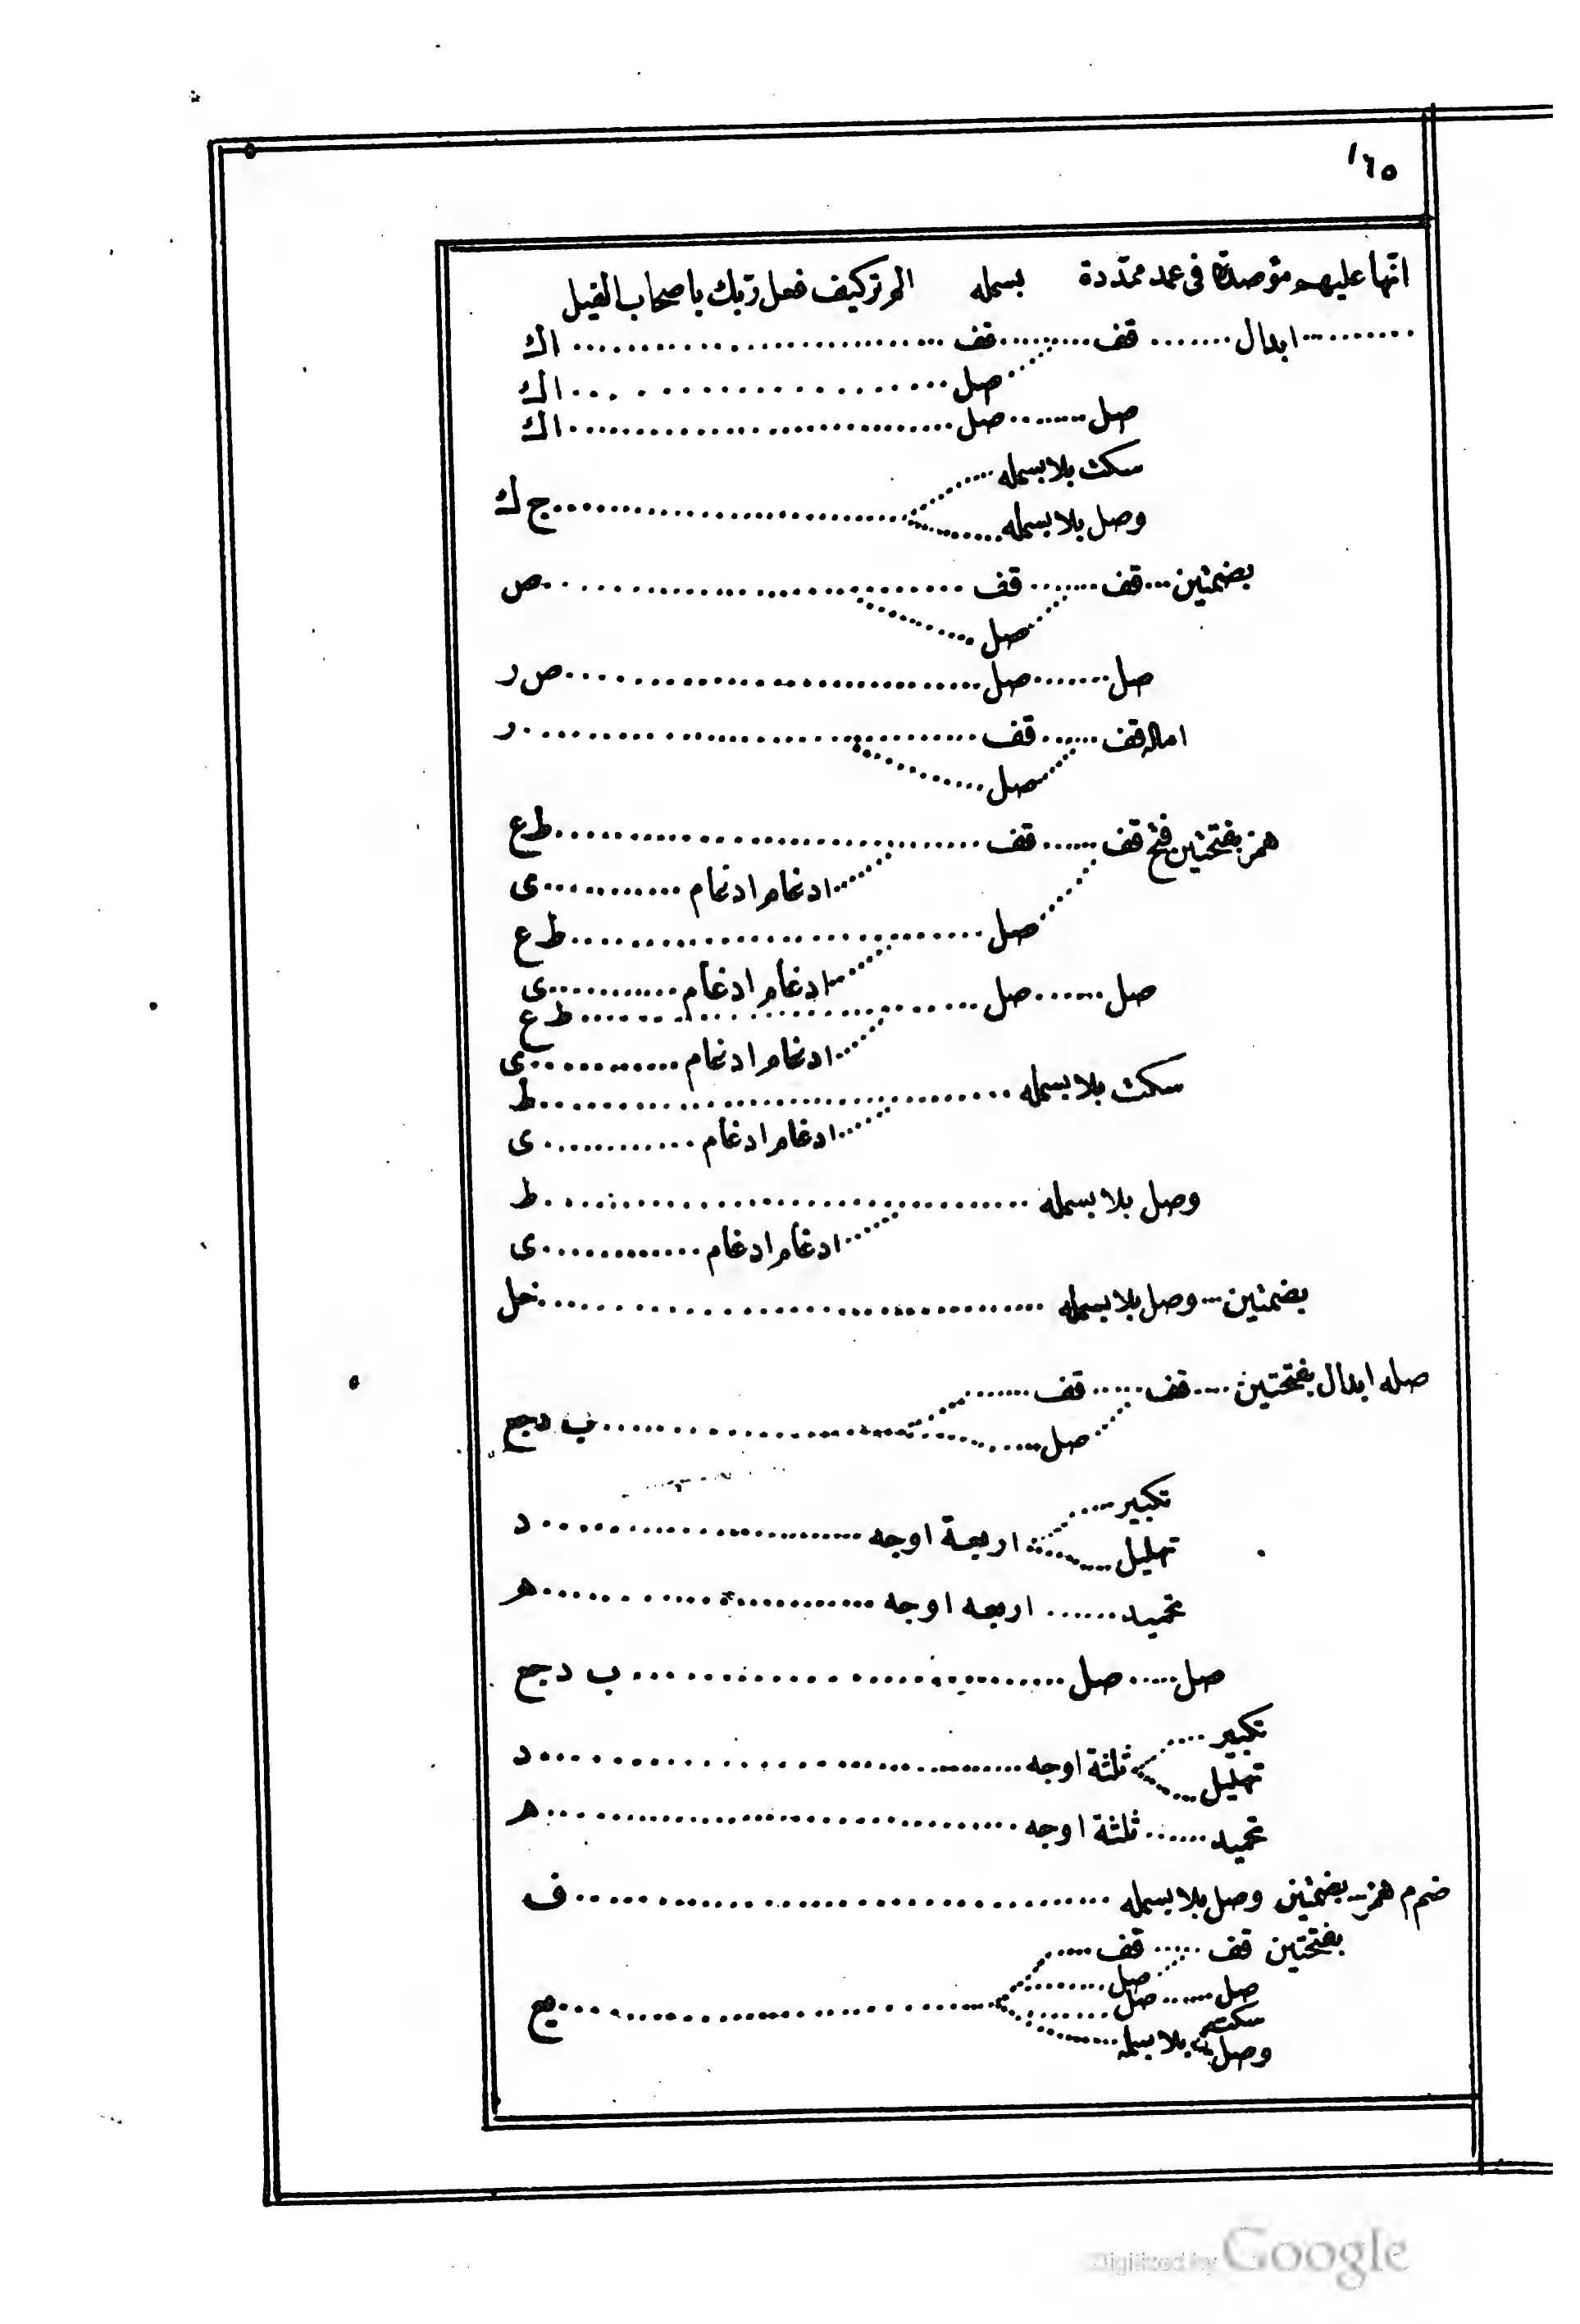 ١٦٥
انّها عليهم مؤصدة فى عمد ممدّدة بسمله الم تر كيف فعل ربّك باصحاب الفيل
ابدال قف قف اك
صل اك
صل صل اك
سكت بلا بسمله
وصل بلا بسمله ج ك
بضمتين قف قف ص
صل
صل صل ص ر
اماله قف قف ر
صل
همز بفتحتين فتح قف قف ط ع
ادغام ادغام ى
صل ط ع
ادغام ادغام ى
صل صل ط ع
ادغام ادغام ى
سكت بلا بسمله ط
ادغام ادغام ى
وصل بلا بسمله ط
ادغام ادغام ى
بضمتين وصل بلا بسمله خل
صله ابدال بفتحتين قف قف
صل ب د جع
تكبير
تهليل اربعة اوجه د
تحميد اربعه اوجه هـ
صل صل ب د جع
تكبير
تهليل ثلثة اوجه د
تحميد ثلثة اوجه هـ
ضم م همز بضمتين وصل بلا بسمله ف
بفتحتين قف قف
صل
صل صل
سكت
وصل بلا بسمله
Digitized by Google